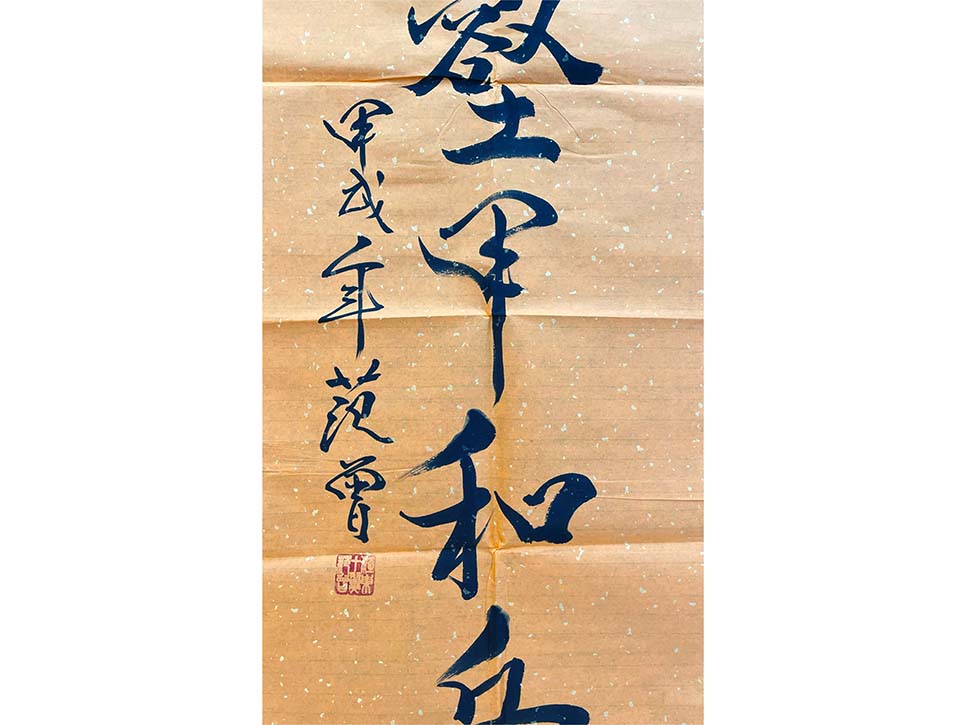 壑甲和
甲戌年 范曾